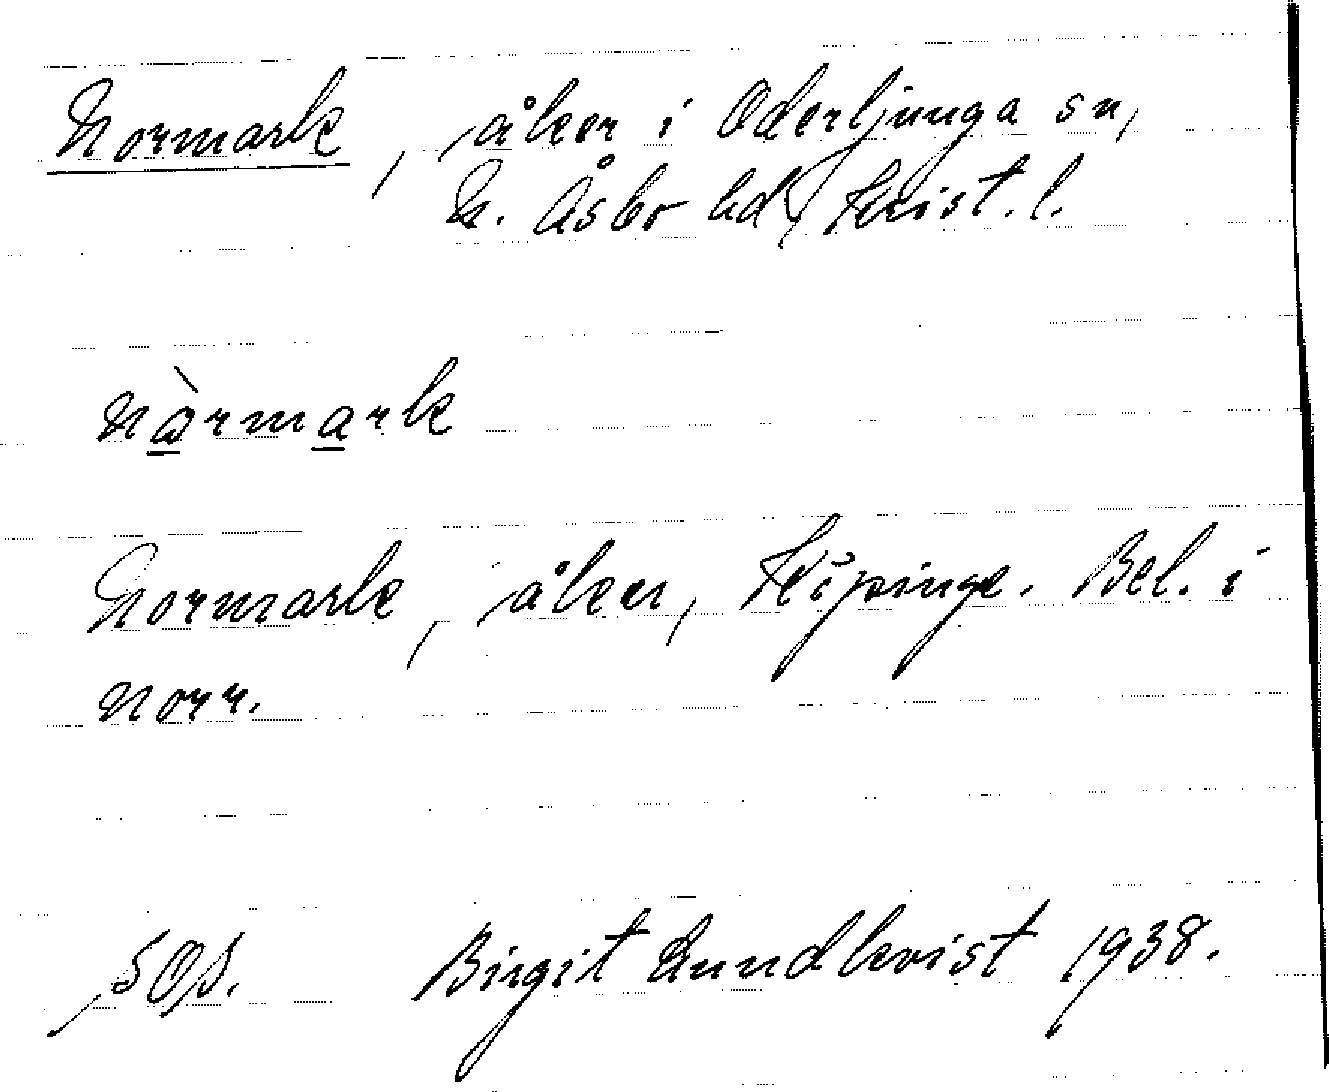 Normark, åker i Oderljunga sn,
N. Åsbo hd, Krist. l.
nàrmark
Normark, åker, Köpinge. Bel. i
norr.
Birgit Lundkvist 1938.